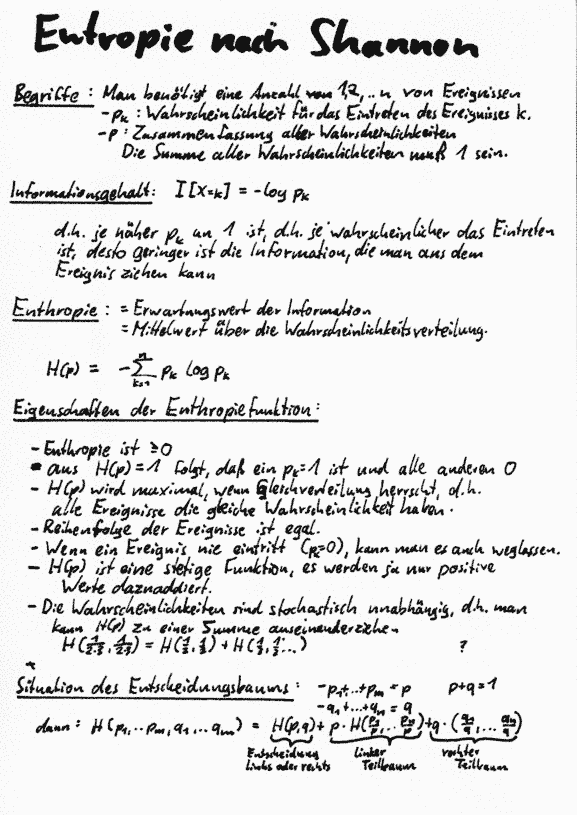 Entropie nach Shannon
Begriffe : Man benötigt eine Anzahl von 1,2,..n von Ereignissen
- pₖ : Wahrscheinlichkeit für das Eintreten des Ereignisses k.
- p : Zusammenfassung aller Wahrscheinlichkeiten
Die Summe aller Wahrscheinlichkeiten muß 1 sein.
Informationsgehalt: I[X=k] = -log pₖ
d.h. je näher pₖ an 1 ist, d.h. je wahrscheinlicher das Eintreten
ist, desto geringer ist die Information, die man aus dem
Ereignis ziehen kann
Enthropie : = Erwartungswert der Information
= Mittelwert über die Wahrscheinlichkeitsverteilung.
H(p) = -∑ₖ₌₁ⁿ pₖ log pₖ
Eigenschaften der Enthropiefunktion:
- Enthropie ist ≥0
- aus H(p)=1 folgt, daß ein pₖ=1 ist und alle anderen 0
- H(p) wird maximal, wenn Gleichverteilung herrscht, d.h.
alle Ereignisse die gleiche Wahrscheinlichkeit haben.
- Reihenfolge der Ereignisse ist egal.
- Wenn ein Ereignis nie eintritt (pₖ=0), kann man es auch weglassen.
- H(p) ist eine stetige Funktion, es werden ja nur positive
Werte dazuaddiert.
- Die Wahrscheinlichkeiten sind stochastisch unabhängig, d.h. man
kann H(p) zu einer Summe auseinanderziehen
?
Situation des Entscheidungsbaums : - p₁+..+pₘ = p p+q=1
- q₁+...+qₙ = q
dann : H(p₁,..pₘ,q₁,..qₘ) = H(p,q) + p·H(p₁/p,..pₘ/p) + q·(q₁/q,...qₙ/q)
Entscheidung linker rechter
links oder rechts Teilbaum Teilbaum